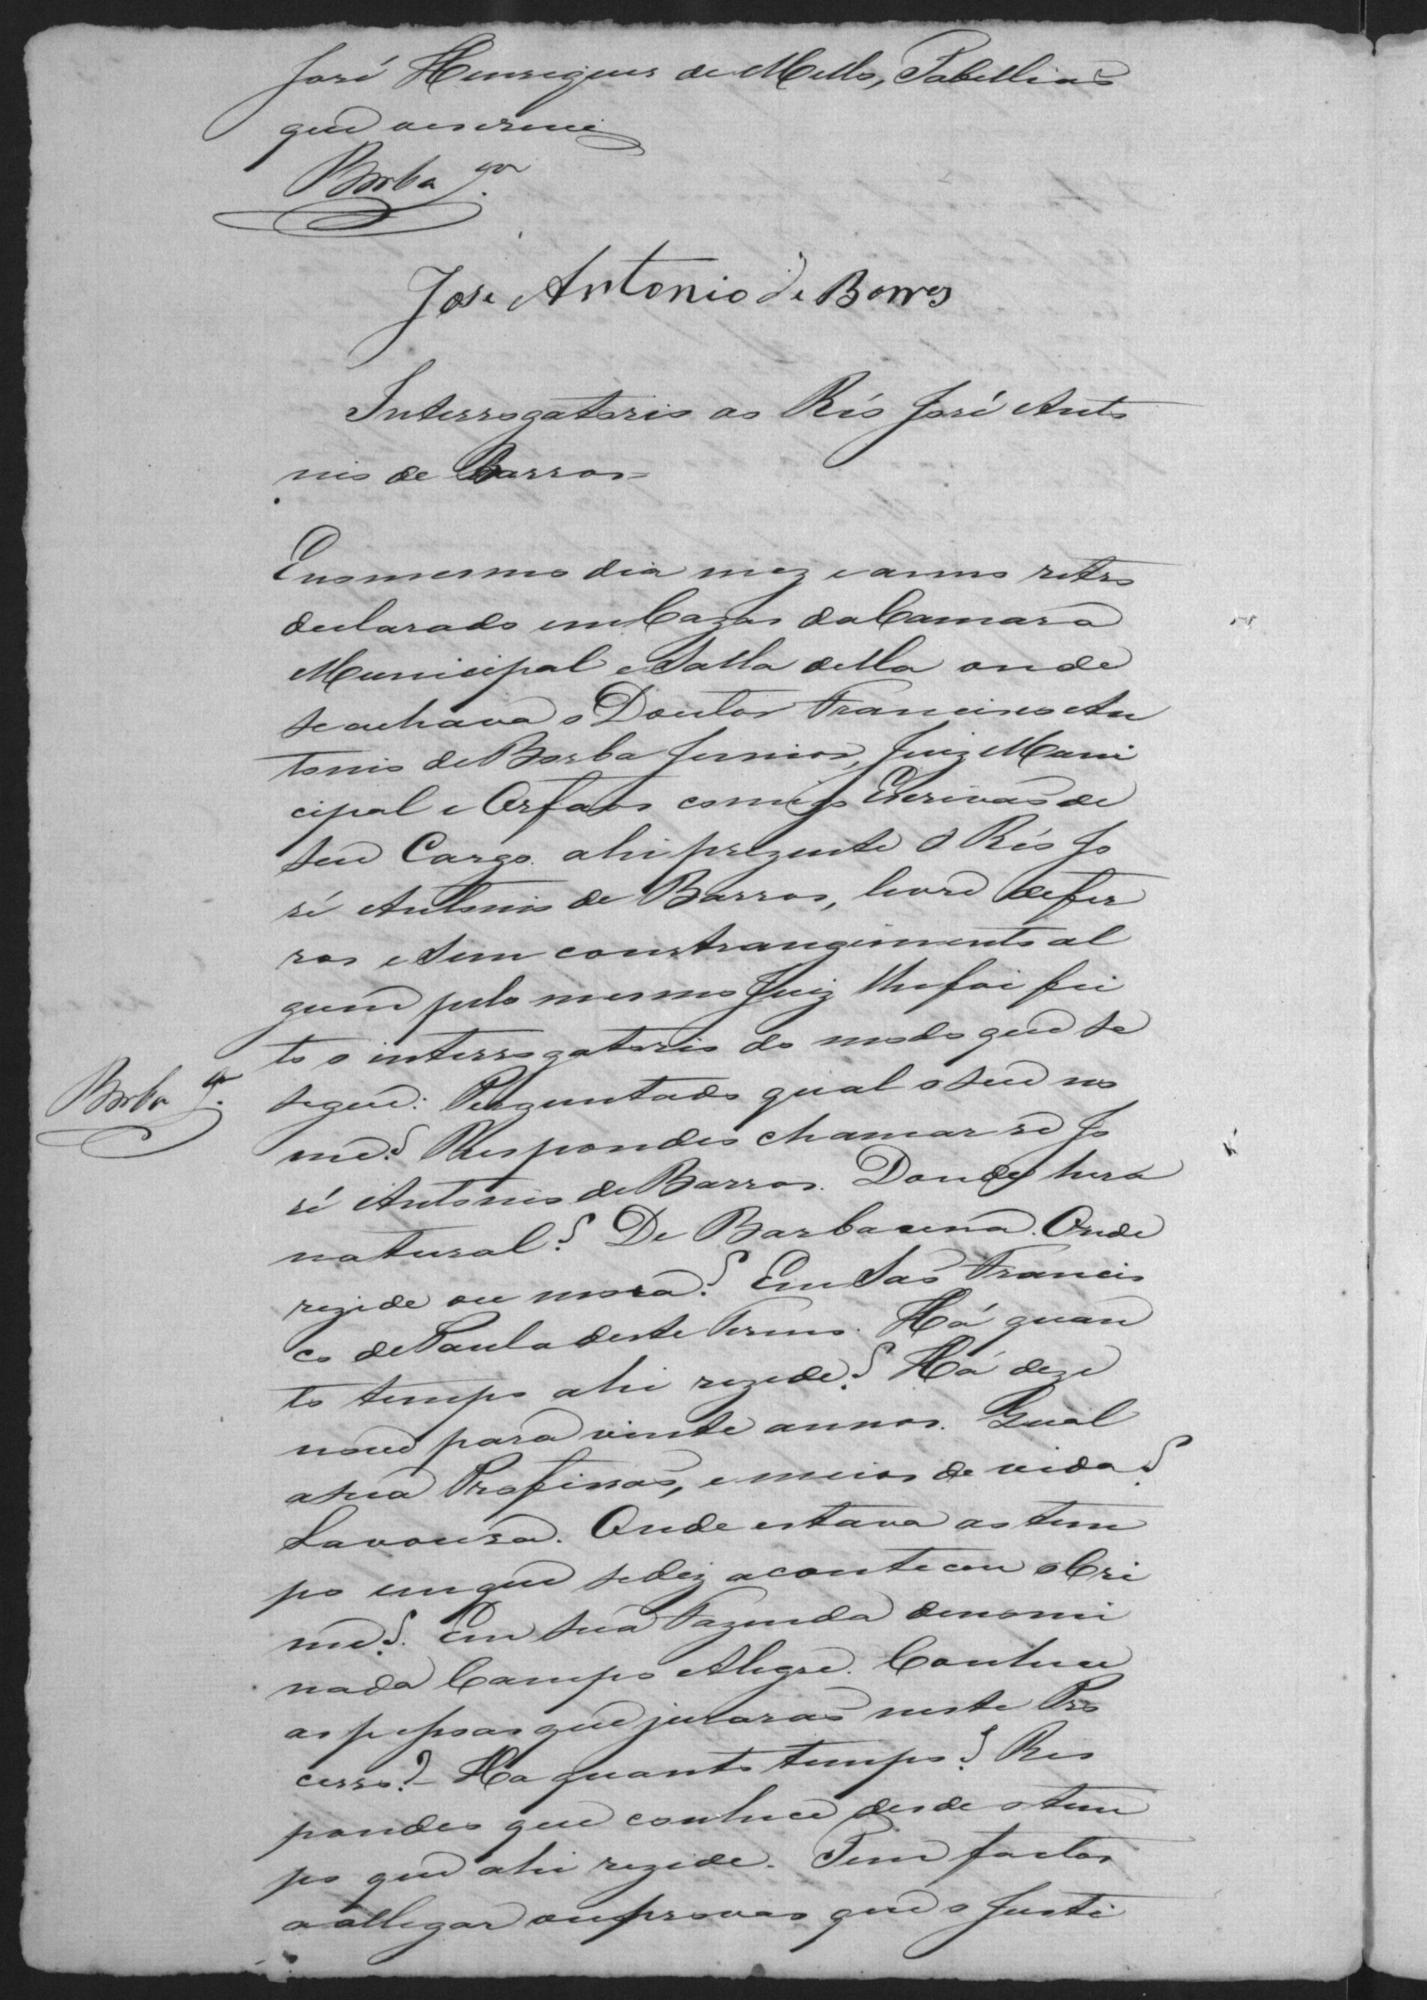 José Henriques de Mello, Tabellião
que o escrevi
Borba Jor.
Jose Antonio de Borros
Interrogatorio ao Réo José Anto
nio de Barros
E no mesmo dia mez e anno retro
declarado em Cazas da Camara
Municipal e Salla della onde
se achava o Doutor Francisco An
tonio de Borba Junior, Juiz Muni
cipal e Orfaõs comigo Escrivaõ de
seu Cargo ahi prezente o Réo Jo
sé Antonio de Barros, livre de fer
ros e sem constrangimento al
gum pelo mesmo Juiz lhe foi fei
to o interrogatorio do modo que se
segue: Perguntado qual o seu no
Borba Jor.
me? Respondeo chamar se Jo
sé Antonio de Barros. Donde hera
natural? De Barbacena. Onde
rezide ou mora? Em Saõ Francis
co de Paula deste Termo. Há quan
to tempo ahi rezide? Há deze
nove para vinte annos. Qual
a sua Profissaõ, e meios de vida?
Lavoura. Onde estava ao tem
po em que se diz aconteceu o Cri
me? Em sua Fazenda denomi
nada Campo Alegre. Conhece
as pessoas que juraraõ neste Pro
cesso? Ha quanto tempo? Res
pondeo que conhece desde o tem
po que ahi rezide. Tem factos
a allegar ou provas que o Justi